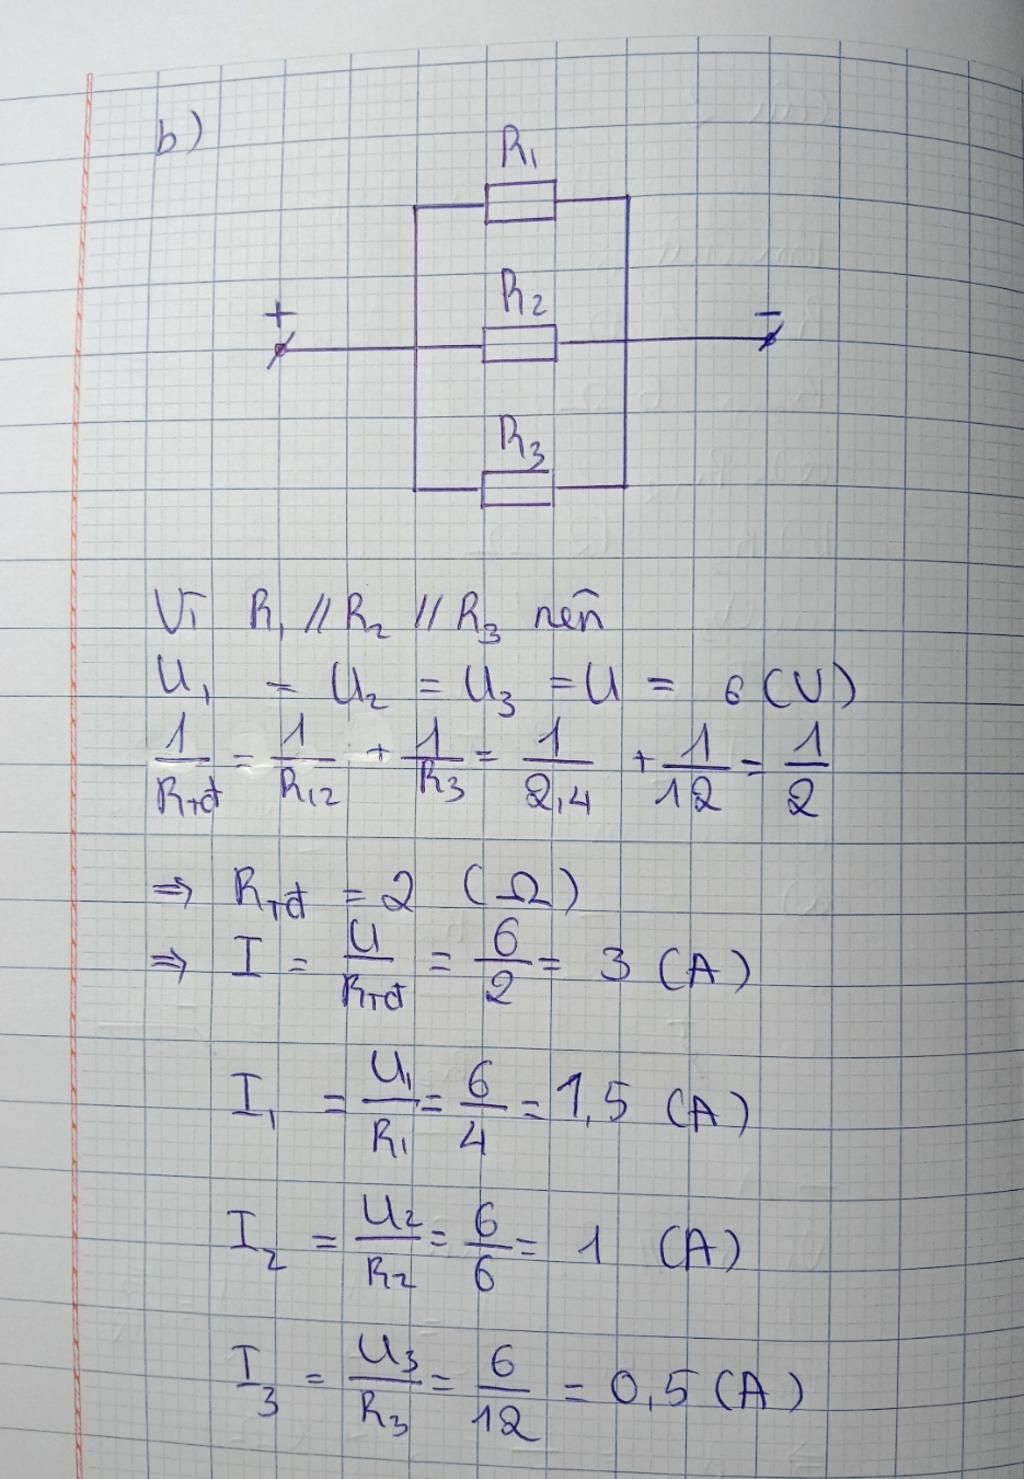 b)
R₁
R₂
+ −
R₃
Vì R₁ // R₂ // R₃ nên
U₁ = U₂ = U₃ = U = 6 (V)
1/Rtđ = 1/R₁₂ + 1/R₃ = 1/2,4 + 1/12 = 1/2
⇒ Rtđ = 2 (Ω)
⇒ I = U/Rtđ = 6/2 = 3 (A)
I₁ = U₁/R₁ = 6/4 = 1,5 (A)
I₂ = U₂/R₂ = 6/6 = 1 (A)
I₃ = U₃/R₃ = 6/12 = 0,5 (A)